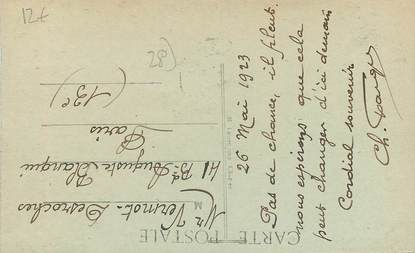 CARTE POSTALE
26 Mai 1923
Pas de chance, il pleut.
nous espérons que cela
peut changer d'ici demain
Cordial souvenir
Mr Vermot-Desroches
41 Bd Auguste Blanqui
Paris
(13e)
127